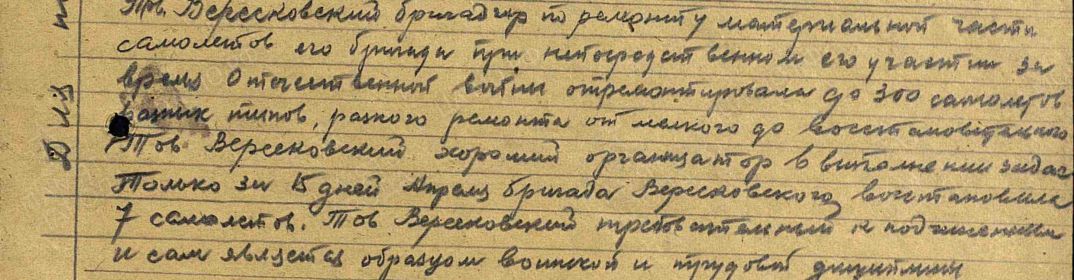 Тов. Вересковский бригадир по ремонту материальной части
самолетов его бригада при непосредственном его участии за
время Отечественной войны отремонтировала до 300 самолетов
разних типов, разного ремонта от мелкого до восстановительного
Тов Вересковский хороший организатор в выполнении задас
Только за 15 дней Апреля бригада Вересковского восстановила
7 самолетов. Тов Вересковский требовательный к подчиненным
и сам является образцом воинской и трудовой дисциплины